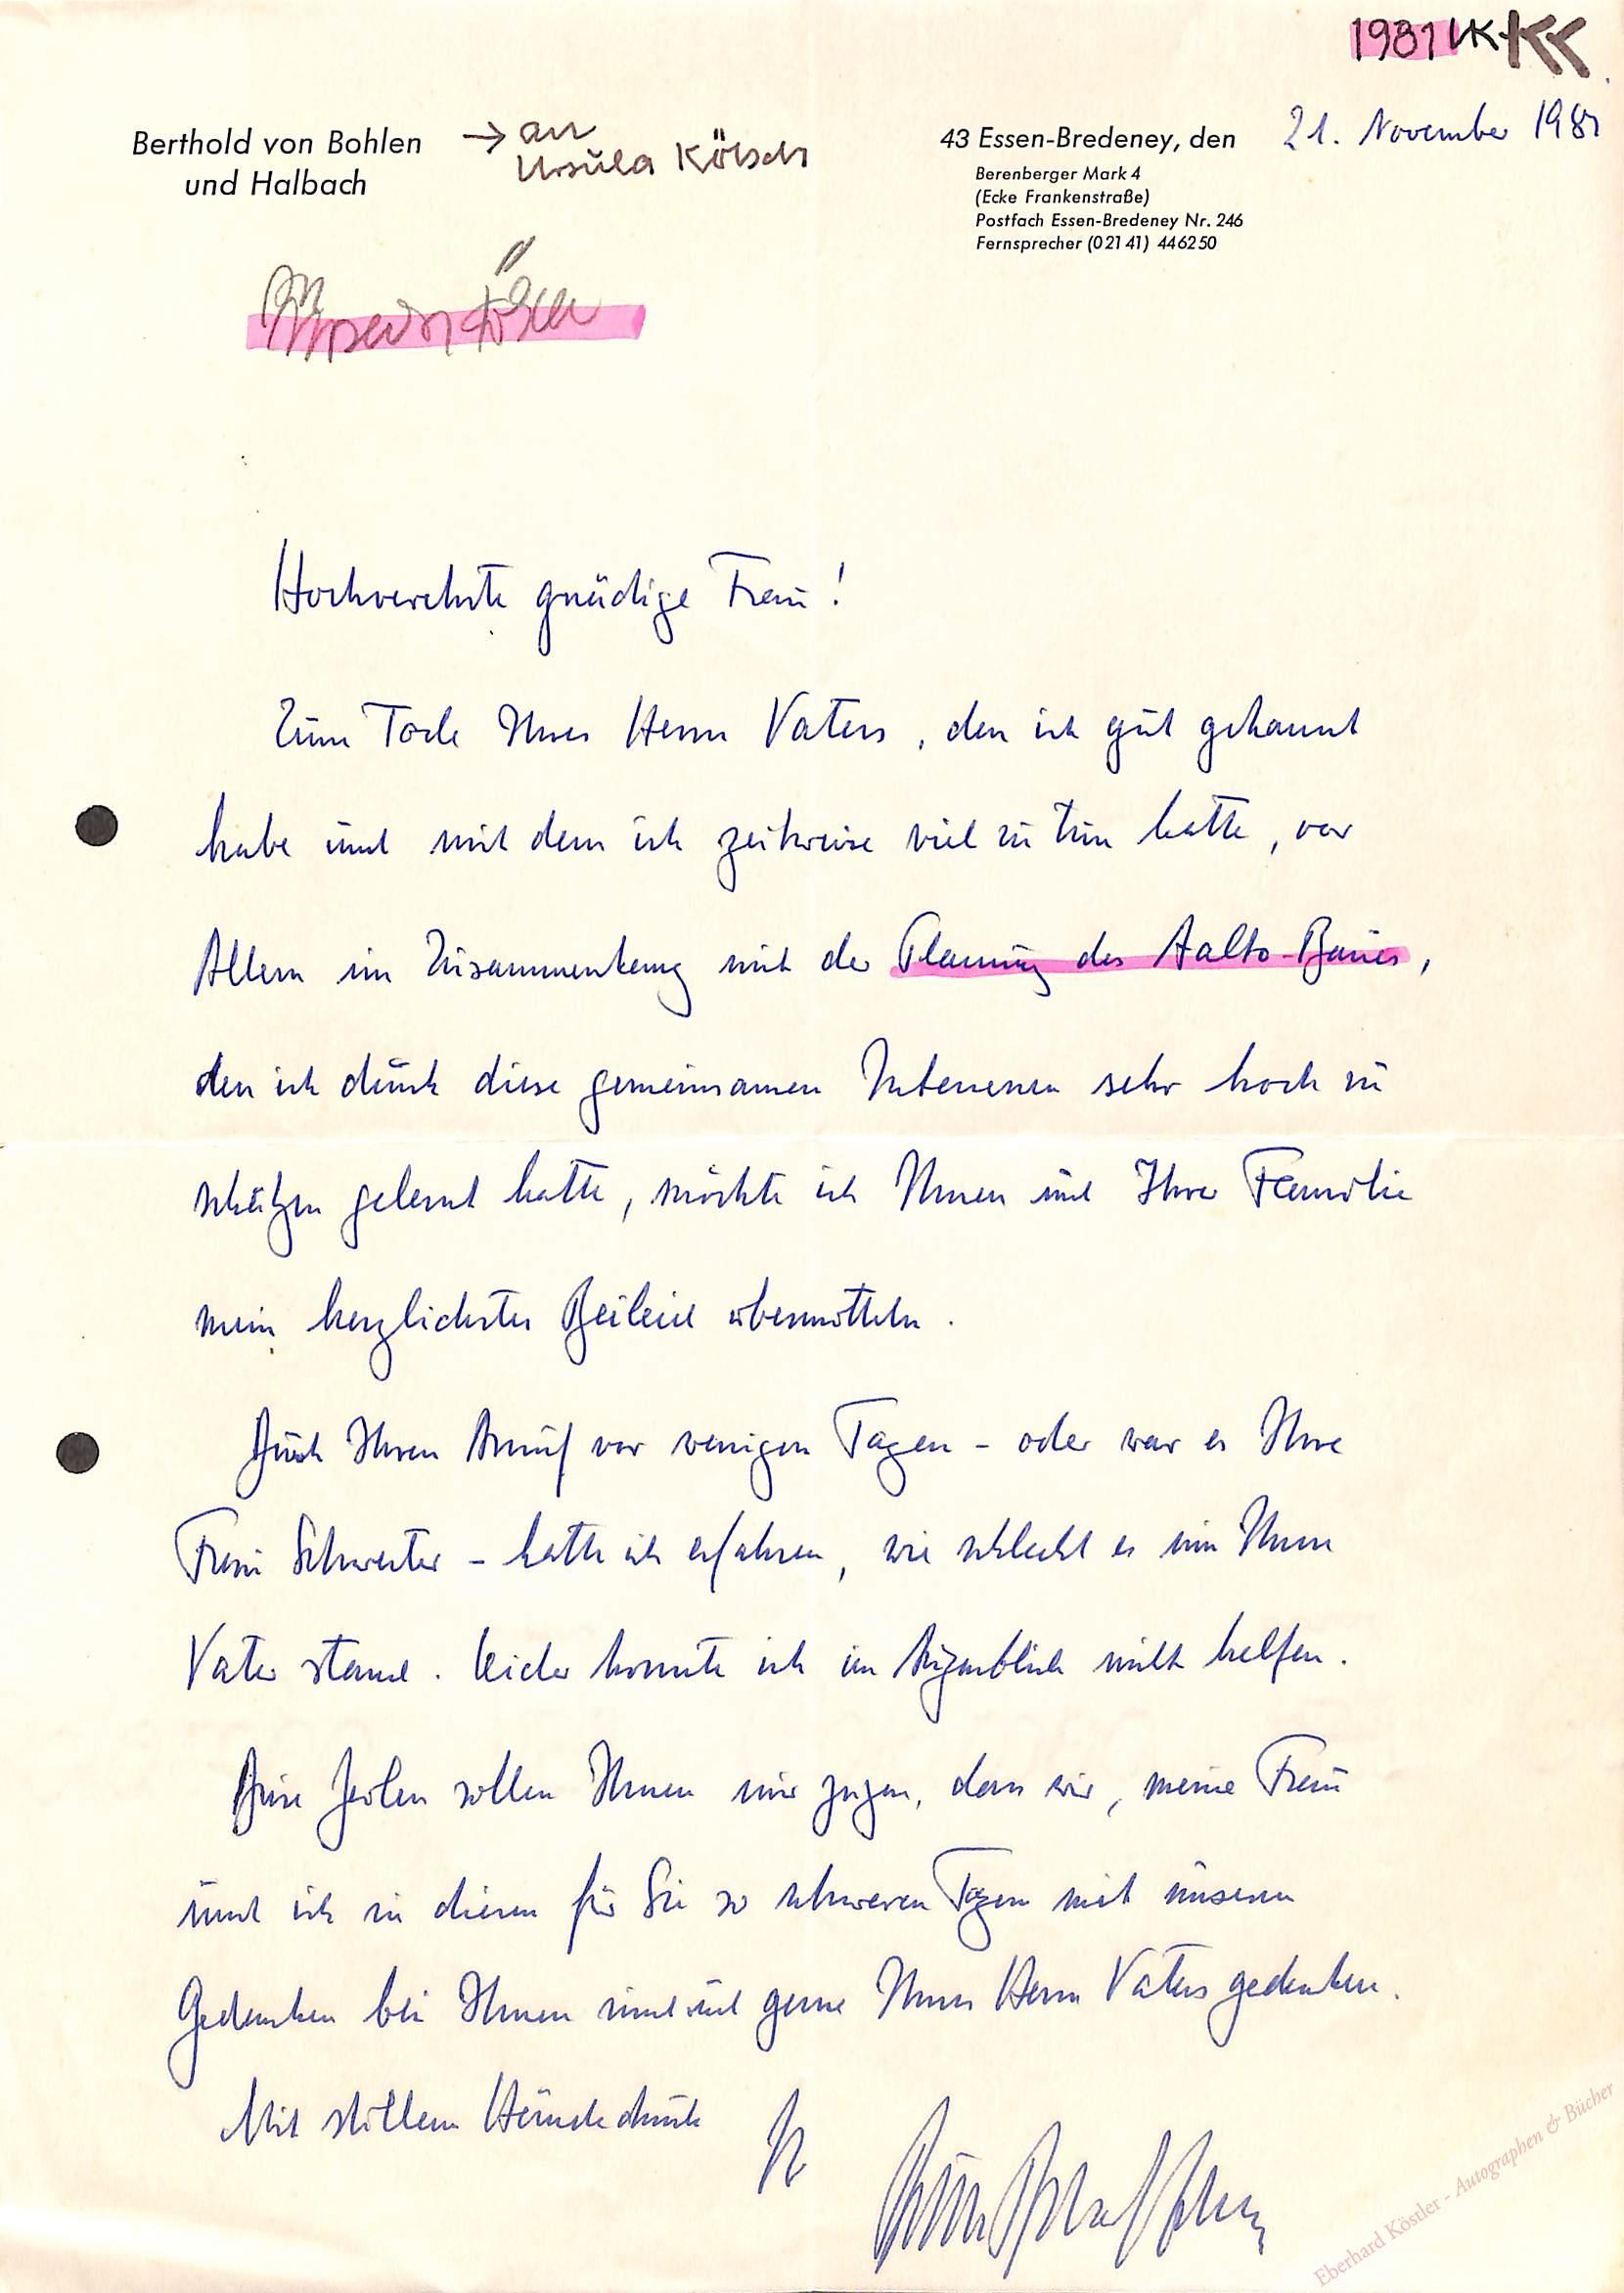 1981
Berthold von Bohlen
und Halbach
→ an
Ursula Kölsch
43 Essen-Bredeney, den 21. November 1981
Berenberger Mark 4
(Ecke Frankenstraße)
Postfach Essen-Bredeney Nr. 246
Fernsprecher (0 21 41) 44 62 50
Hochverehrte gnädige Frau!
Zum Tode Ihres Herrn Vaters, den ich gut gekannt
habe und mit dem ich zeitweise viel zu tun hatte, vor
Allem im Zusammenhang mit der Planung des Aalto-Baues,
den ich durch diese gemeinsamen Interessen sehr hoch zu
schätzen gelernt hatte, möchte ich Ihnen und Ihrer Familie
mein herzlichstes Beileid übermitteln.
Durch Ihren Anruf vor wenigen Tagen - oder war es Ihre
Frau Schwester - hatte ich erfahren, wie schlecht es um Ihren
Vater stand. Leider konnte ich im Augenblick nicht helfen.
Diese Zeilen sollen Ihnen nur zeigen, dass wir, meine Frau
und ich in diesen für Sie so schweren Tagen mit unseren
Gedenken bei Ihnen sind und gerne Ihres Herrn Vaters gedenken.
Mit stillem Händedruck
Ihr
Eberhard Köstler - Autographen & Bücher